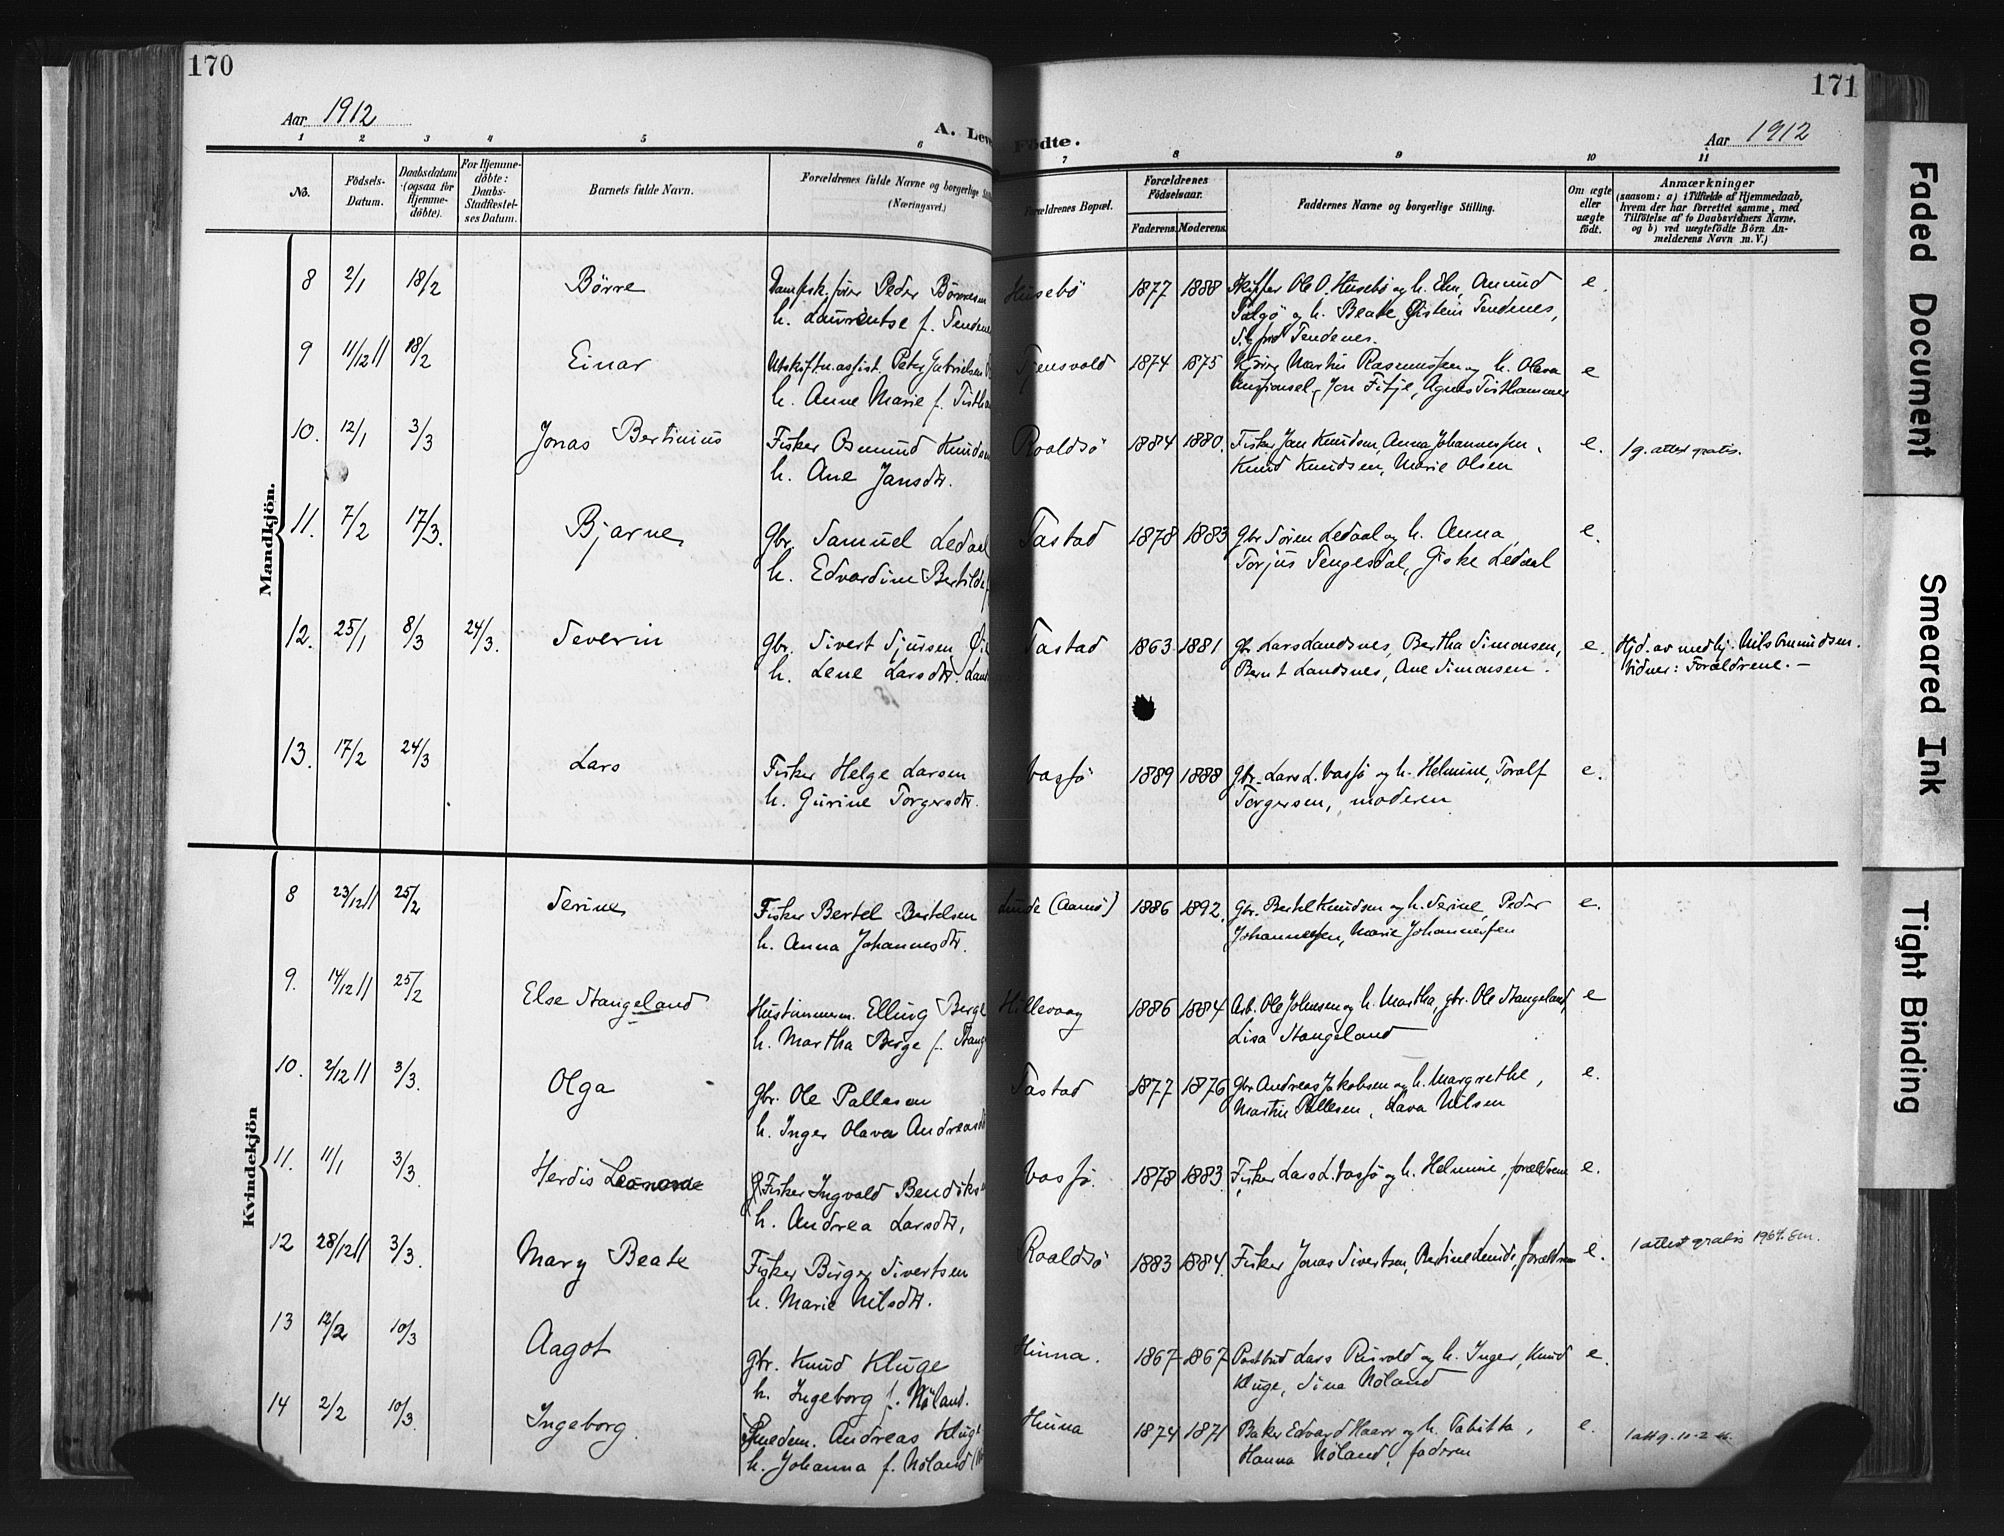 170
171
Aar 1912
A. Lev
Födte.
Aar 1912
1 2 3 4 5 6 7 8 9 10 11
No.
Födsels-
Datum.
Daabsdatum
(ogsaa for
Hjemme-
døbte).
For Hjemme-
døbte:
Daabs-
Stadfæstel-
ses Datum.
Barnets fulde Navn.
Forældrenes fulde Navne og borgerlige
(Næringsvei.)
Forældrenes Bopæl.
Forældrenes
Fødselsaar.
Faderens. Moderens.
Faddernes Navne og borgerlige Stilling.
Om ægte
eller
uægte
født.
Anmærkninger
(saasom: a) i Tilfælde af Hjemmedaab,
hvem der har forrettet samme, med
Tilföielse af to Daabsvidners Navne,
og b) ved uægtefødte Börn An-
melderens Navn m. V.)
Mandkjön.
8 2/1 18/2 Börre Peder Börresen Husebö 1877 1888 Skipper Ole O. Husebö og h. Amund e.
h. Laurentse f. Tendenes og h. Beate, Øistein Tendenes,
Tendenes.
9 11/12 11 18/2 Einar Utskiftn.assist. Peter Gabrielsen Tjensvold 1874 1875 Martin Rasmussen og h. Olava e
h. Anne Marie f. Jon Fitje, Agnes Tisthammer
10. 12/1 3/3 Jonas Bertinius Fisker Osmund Knudsen Roaldsö 1884 1880. Fisker Jan Knudsen, Anna Johannessen, e. 1 g. attest gratis.
h. Ane Jansdtr. Knud Knudsen, Marie Olsen
11. 7/2 17/3. Bjarne Gbr. Samuel Ledaal Tastad 1878 1883 Gbr Sören Ledaal og h. Anna, e.
h. Edvardine Bertilde Torjus Tengesdal, Giske Ledaal
12. 25/1 8/3 24/3. Severin Gbr. Sivert Sjursen Tastad 1863 1881 Gbr Lars Landsnes, Bertha Simonsen, e. Hjd. av medhj. Nils Omundsen.
h. Lene Larsdtr. Bernt Landsnes, Ane Simonsen. Vidner: Forældrene. –
13. 17/2 24/3 Lars Fisker Helge Larsen Vassö 1889 1888 Gbr. Lars L. Vassö og h. Helmine, Toralf e.
h. Gurine Torgersdtr. Torgersen, moderen
Kvindekjön
8 23/12 11 25/2 Serine Fisker Bertel Bertelsen Lunde (Aamö) 1886 1892. Gbr. Bertel Knudsen og h. Serine, Peder e.
h. Anna Johannesdtr. Johannessen, Marie Johannessen
9. 14/12 11 25/2 Else Stangeland Hustømmerm. Elling Berge Hillevaag 1886 1884 Arb. Ole Johnsen og h. Martha, gbr. Ole Stangeland, e
h. Martha Berge f. Stang Lisa Stangeland
10. 2/12 11 3/3. Olga Gbr. Ole Pallesen Tastad 1877 1876 Gbr Andreas Jakobsen og h. Margrethe, e.
h. Inger Olava Andreasdt Martin Pallesen, Lava Nilsen
11. 11/1 3/3. Herdis Leonarde Fisker Ingvald Bendiksen Vassö. 1878 1883. Fisker Lars L. Vassö og h. Helmine, forældrene e.
h. Andrea Larsdtr,
12 28/12 11 3/3. Mary Beate Fisker Birger Sivertsen Roaldsö 1883 1884. Fisker Jonas Sivertsen, Bertine Lunde, forældrene e. 1 attest gratis 1964.
h. Marie Nilsdtr.
13 12/2 10/3 Aagot Gbr. Knud Kluge Hinna. 1867 1867 Postbud Lars Risvold og h. Inger, Knud e.
h. Ingeborg f. Nöland. Kluge, Sina Nöland
14 2/2 10/3. Ingeborg. Smedem. Andreas Kluge Hinna 1874 1871 Baker Edvard Haarr og h. Tabitta, e.
h. Johanna f. Nöland Hanna Nöland, faderen
Faded Document
Smeared Ink
Tight Binding